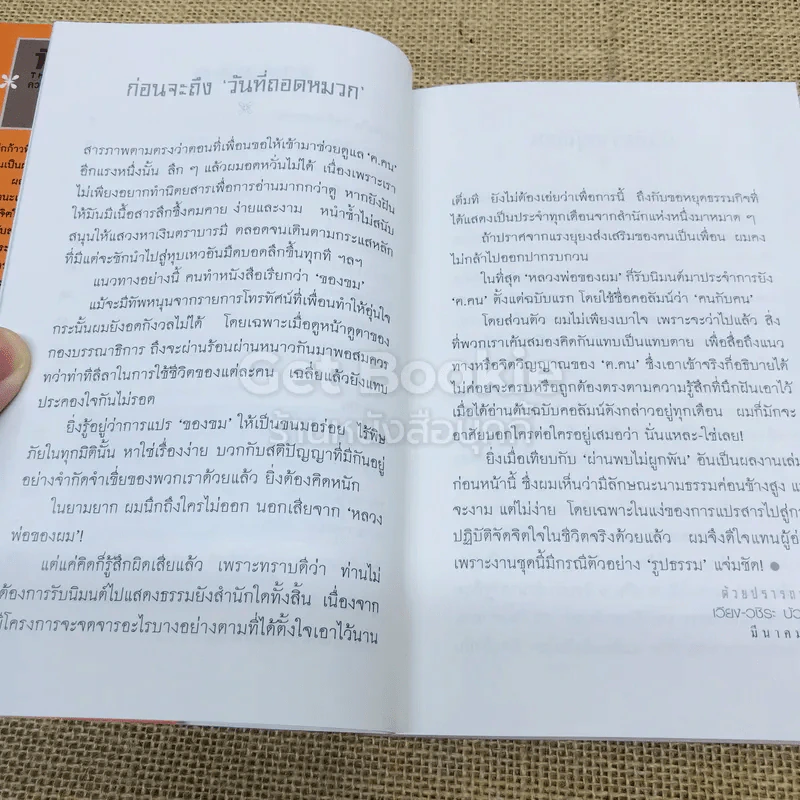 ก่อนจะถึง 'วันที่ถอดหมวก'
สารภาพตามตรงว่าตอนที่เพื่อนขอให้เข้ามาช่วยดูแล 'ค.คน'
อีกแรงหนึ่งนั้น ลึก ๆ แล้วผมอดหวั่นไม่ได้ เนื่องเพราะเรา
ไม่เพียงอยากทำนิตยสารเพื่อการอ่านมากกว่าดู หากยังฝัน
ให้มันมีเนื้อสารลึกซึ้งคมคาย ง่ายและงาม หนำซ้ำไม่สนับ
สนุนให้แสวงหาเงินตราบารมี ตลอดจนเดินตามกระแสหลัก
ที่มีแต่จะชักนำไปสู่หุบเหวอันมืดบอดลึกขึ้นทุกที ฯลฯ
แนวทางอย่างนี้ คนทำหนังสือเรียกว่า 'ของขม'
แม้จะมีทัพหนุนจากรายการโทรทัศน์ที่เพื่อนทำให้อุ่นใจ
กระนั้นผมยังอดกังวลไม่ได้ โดยเฉพาะเมื่อดูหน้าดูตาของ
กองบรรณาธิการ ถึงจะผ่านร้อนผ่านหนาวกันมาพอสมควร
ทว่าท่าทีลีลาในการใช้ชีวิตของแต่ละคน เฉลี่ยแล้วยังแทบ
ประคองใจกันไม่รอด
ยิ่งรู้อยู่ว่าการแปร 'ของขม' ให้เป็นขนมอร่อย ไร้พิษ
ภัยในทุกมิตินั้น หาใช่เรื่องง่าย บวกกับสติปัญญาที่มีกันอยู่
อย่างจำกัดจำเขี่ยของพวกเราด้วยแล้ว ยิ่งต้องคิดหนัก
ในยามยาก ผมนึกถึงใครไม่ออก นอกเสียจาก 'หลวง
พ่อของผม'!
แต่แค่คิดก็รู้สึกผิดเสียแล้ว เพราะทราบดีว่า ท่านไม่
ต้องการรับนิมนต์ไปแสดงธรรมยังสำนักใดทั้งสิ้น เนื่องจาก
มีโครงการจะจดจารอะไรบางอย่างตามที่ได้ตั้งใจเอาไว้นาน
เต็มที ยังไม่ต้องเอ่ยว่าเพื่อการนี้ ถึงกับขอหยุดธรรมกิจที่
ได้แสดงเป็นประจำทุกเดือนจากสำนักแห่งหนึ่งมาหมาด ๆ
ถ้าปราศจากแรงยุยงส่งเสริมของคนเป็นเพื่อน ผมคง
ไม่กล้าไปออกปากรบกวน
ในที่สุด 'หลวงพ่อของผม' ก็รับนิมนต์มาประจำการยัง
'ค.คน' ตั้งแต่ฉบับแรก โดยใช้ชื่อคอลัมน์ว่า 'คนกับคน'
โดยส่วนตัว ผมไม่เพียงเบาใจ เพราะจะว่าไปแล้ว สิ่ง
ที่พวกเราค้นสมองคิดกันแทบเป็นแทบตาย เพื่อสื่อถึงแนว
ทางหรือจิตวิญญาณของ 'ค.คน' ซึ่งเอาเข้าจริงก็อธิบายได้
ไม่ค่อยจะครบหรือถูกต้องตรงตามความรู้สึกที่นึกฝันเอาไว้
เมื่อได้อ่านต้นฉบับคอลัมน์ดังกล่าวอยู่ทุกเดือน ผมก็มักจะ
อาศัยบอกใครต่อใครอยู่เสมอว่า นั่นแหละ-ใช่เลย!
ยิ่งเมื่อเทียบกับ 'ผ่านพบไม่ผูกพัน' อันเป็นผลงานเล่ม
ก่อนหน้านี้ ซึ่งผมเห็นว่ามีลักษณะนามธรรมค่อนข้างสูง แม้
จะงาม แต่ไม่ง่าย โดยเฉพาะในแง่ของการแปรสารไปสู่การ
ปฏิบัติจัดจิตใจในชีวิตจริงด้วยแล้ว ผมจึงดีใจแทนผู้อ่
เพราะงานชุดนี้มีกรณีตัวอย่าง 'รูปธรรม' แจ่มชัด! ●
ด้วยปรารถ
เวียง-วชิระ บัว
มีนาคม
Get Bookie
ร้านหนังสือบุคกี้